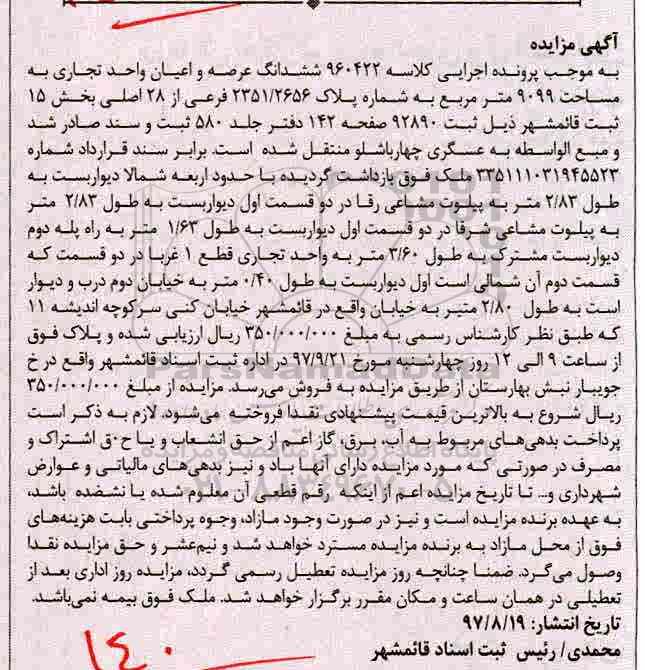 آگهی مزایده
به موجب پرونده اجرایی کلاسه ۹۶۰۴۲۲ ششدانگ عرصه و اعیان واحد تجاری به
مساحت ۹۰۹۹ متر مربع به شماره پلاک ۲۳۵۱/۲۶۵۶ فرعی از ۲۸ اصلی بخش ۱۵
ثبت قائمشهر ذیل ثبت ۹۲۸۹۰ صفحه ۱۴۲ دفتر جلد ۵۸۰ ثبت و سند صادر شد
و مبع الواسطه به عسگری چهارباشلو منتقل شده است. برابر سند قرارداد شماره
۳۳۵۱۱۱۰۳۱۹۴۵۵۲۳ ملک فوق بازداشت گردیده با حدود اربعه شمالا دیواربست به
طول ۲/۸۳ متر به پیلوت مشاعی رقا در دو قسمت اول دیواربست به طول ۲/۸۳ متر
به پیلوت مشاعی شرقا در دو قسمت اول دیواربست به طول ۱/۶۳ متر به راه پله دوم
دیواربست مشترک به طول ۳/۶۰ متر به واحد تجاری قطع ۱ غربا در دو قسمت که
قسمت دوم آن شمالی است اول دیواربست به طول ۰/۴۰ متر به خیابان دوم درب و دیوار
است به طول ۲/۸۰ متیر به خیابان واقع در قائمشهر خیابان کتی سرکوچه اندیشه ۱۱
که طبق نظر کارشناس رسمی به مبلغ ۳۵۰/۰۰۰/۰۰۰ ریال ارزیابی شده و پلاک فوق
از ساعت ۹ الی ۱۲ روز چهارشنبه مورخ ۹۷/۹/۲۱ در اداره ثبت اسناد قائمشهر واقع در خ
جویبار نبش بهارستان از طریق مزایده به فروش می‌رسد. مزایده از مبلغ ۳۵۰/۰۰۰/۰۰۰
ریال شروع به بالاترین قیمت پیشنهادی نقدا فروخته می‌شود. لازم به ذکر است
پرداخت بدهی‌های مربوط به آب، برق، گاز اعم از حق انشعاب و یا ح۰ق اشتراک و
مصرف در صورتی که مورد مزایده دارای آنها باد و نیز بدهی‌های مالیاتی و عوارض
شهرداری و... تا تاریخ مزایده اعم از اینکه رقم قطعی آن معلوم شده یا نشضده باشد،
به عهده برنده مزایده است و نیز در صورت وجود مازاد، وجوه پرداختی بابت هزینه‌های
فوق از محل مازاد به برنده مزایده مسترد خواهد شد و نیم‌عشر و حق مزایده نقدا
وصول می‌گرد. ضمنا چنانچه روز مزایده تعطیل رسمی گردد، مزایده روز اداری بعد از
تعطیلی در همان ساعت و مکان مقرر برگزار خواهد شد. ملک فوق بیمه نمی‌باشد.
تاریخ انتشار: ۹۷/۸/۱۹
محمدی/ رئیس ثبت اسناد قائمشهر
۱۴۰